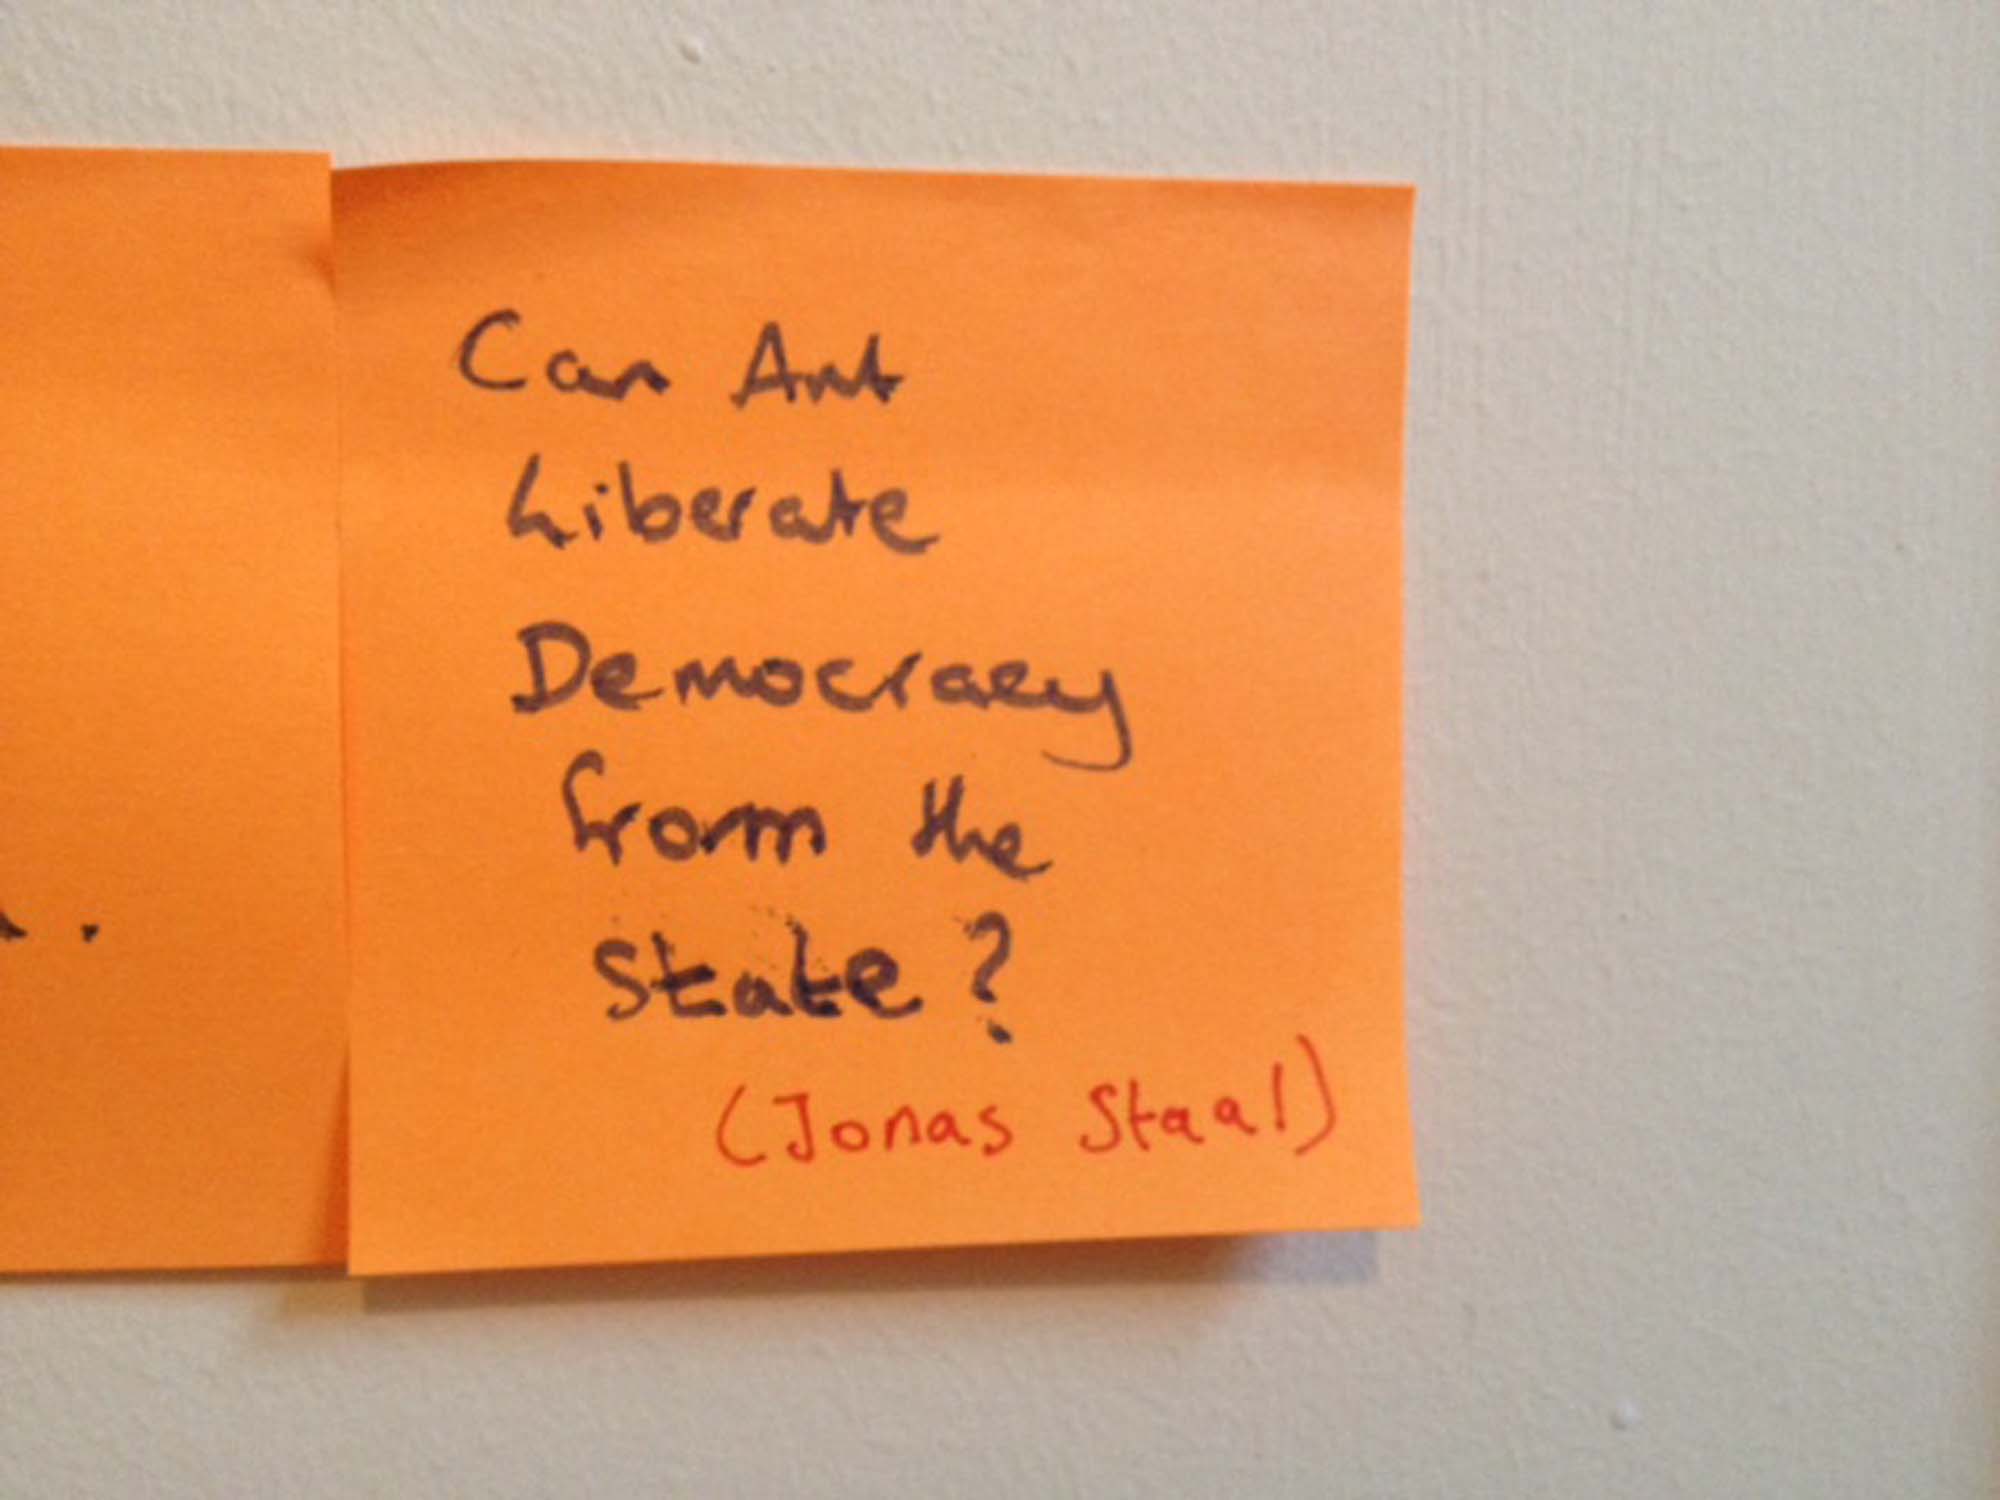 Can Art
Liberate
Democracy
from the
State?
(Jonas Staal)